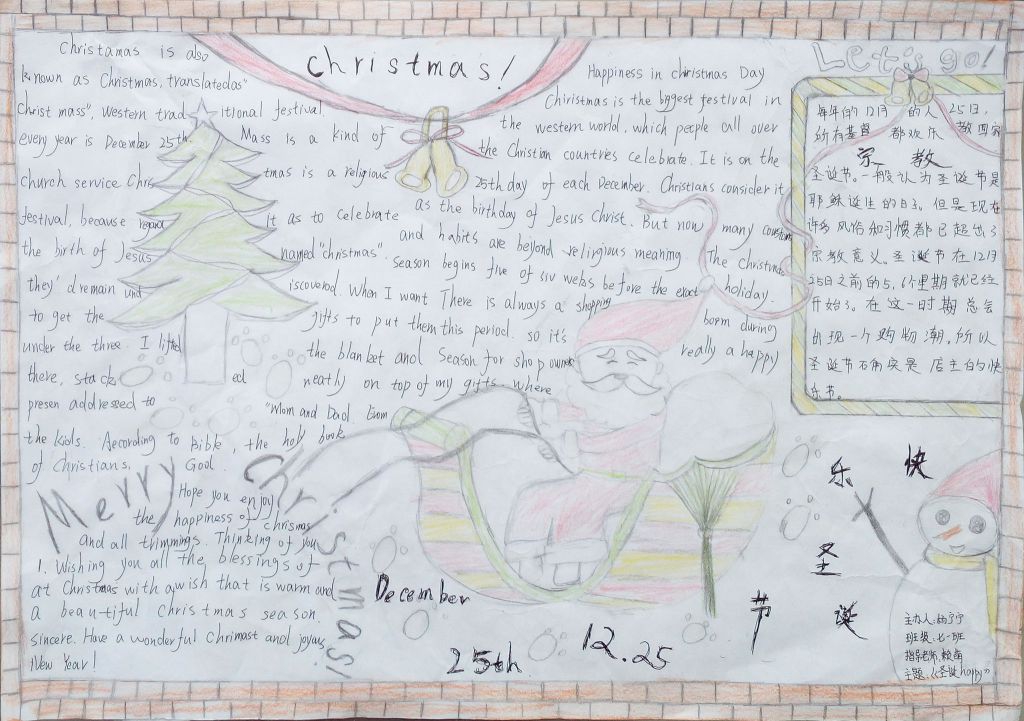 Christmas!
Let's go!
Christamas is also
known as Christmas, translatedas"
Christ mass", western traditional festival.
every year is December 25th. Mass is a kind of
church service Christmas is a religious
festival, because it as to celebrate
the birth of Jesus named "christmas".
they'd remain und iscovered. When I want
to get the gifts to put them
under the three. I lifted the blanket and
there, stacked neatly on top of my gifts where
presen addressed to "Mom and Dad. From
the Kids. According to Bible, the holy book
of Christians, God.
Happiness in christmas Day
Chiristmas is the bggest festival in
the western world. which people call over
the Christian countries celebrate. It is on the
25th day of each December. Christians consider it
as the birthday of Jesus Christ. But now many constoms
and habits are beyond religious meaning. The Christmas
season begins five of siv webks before the exact holiday.
There is always a shopping boem during
this period. so it's really a happy
season for shop owners
每年的12月25日,
所有基督教的人都欢乐
宗教
圣诞节。一般认为圣诞节是
耶稣诞生的日子。但是现在
许多风俗和习惯都已超出了
宗教意义。圣诞节在12月
25日之前的5,6个星期就已经
开始了。在这一时期总会
出现一个购物潮,所以
圣诞节不确实是店主的快
乐节。
Merry Christmas!
Hope you enjoy
the happiness of chrismas
and all thimmings. Thinking of you
1. Wishing you all the blessings of
at Christmas with a wish that is warm and
a beautiful christmas season.
sincere. Have a wonderful Chrimast and joyous
New Year!
December
25th
12.25
圣诞节快乐
主办人:杨宁宁
班级:七一班
指导老师:赖萍
主题:《圣诞happy》